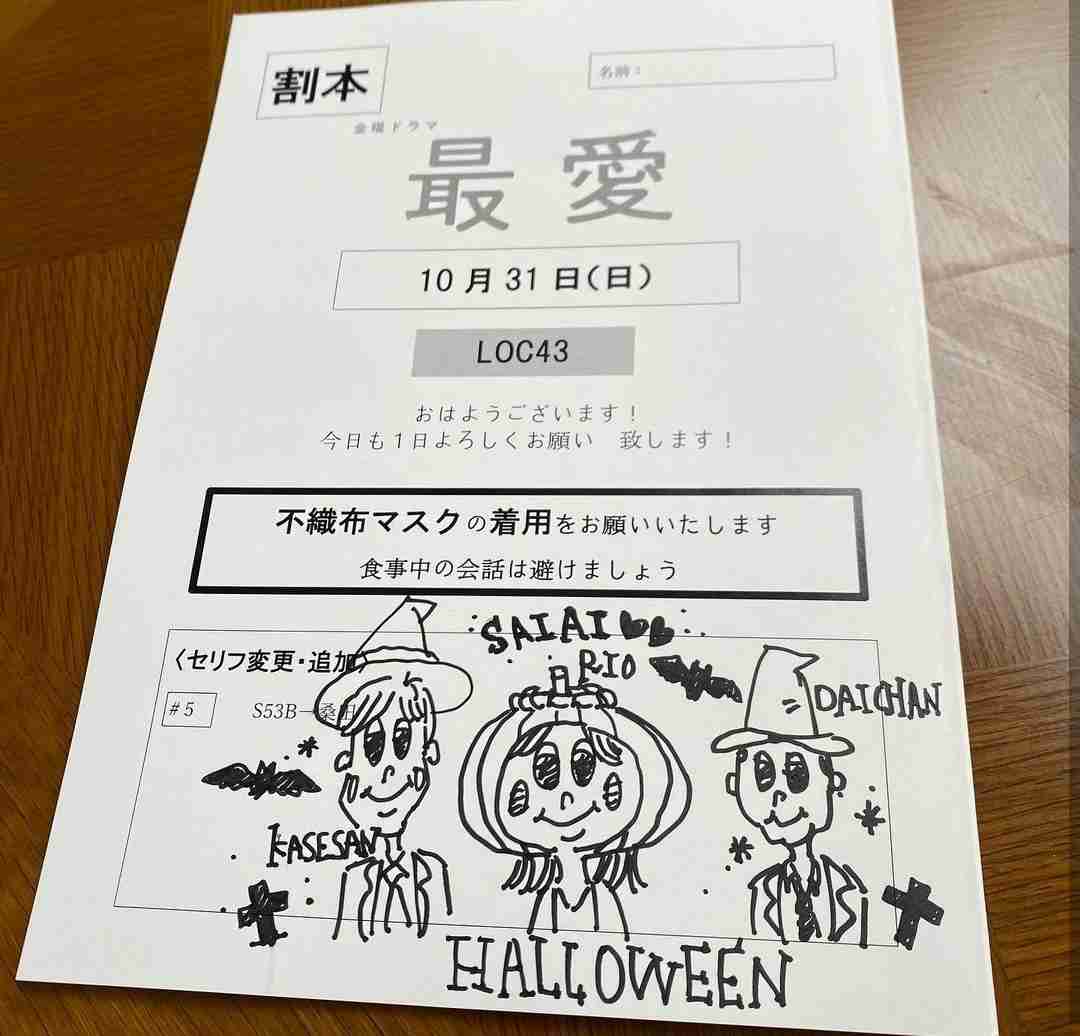 割本
名前：
金曜ドラマ
最愛
10月31日(日)
LOC43
おはようございます！
今日も1日よろしくお願い　致します！
不織布マスクの着用をお願いいたします
食事中の会話は避けましょう
SAIAI
〈セリフ変更・追加〉
RIO
#5
S53B→桑田
DAICHAN
KASESAN
HALLOWEEN